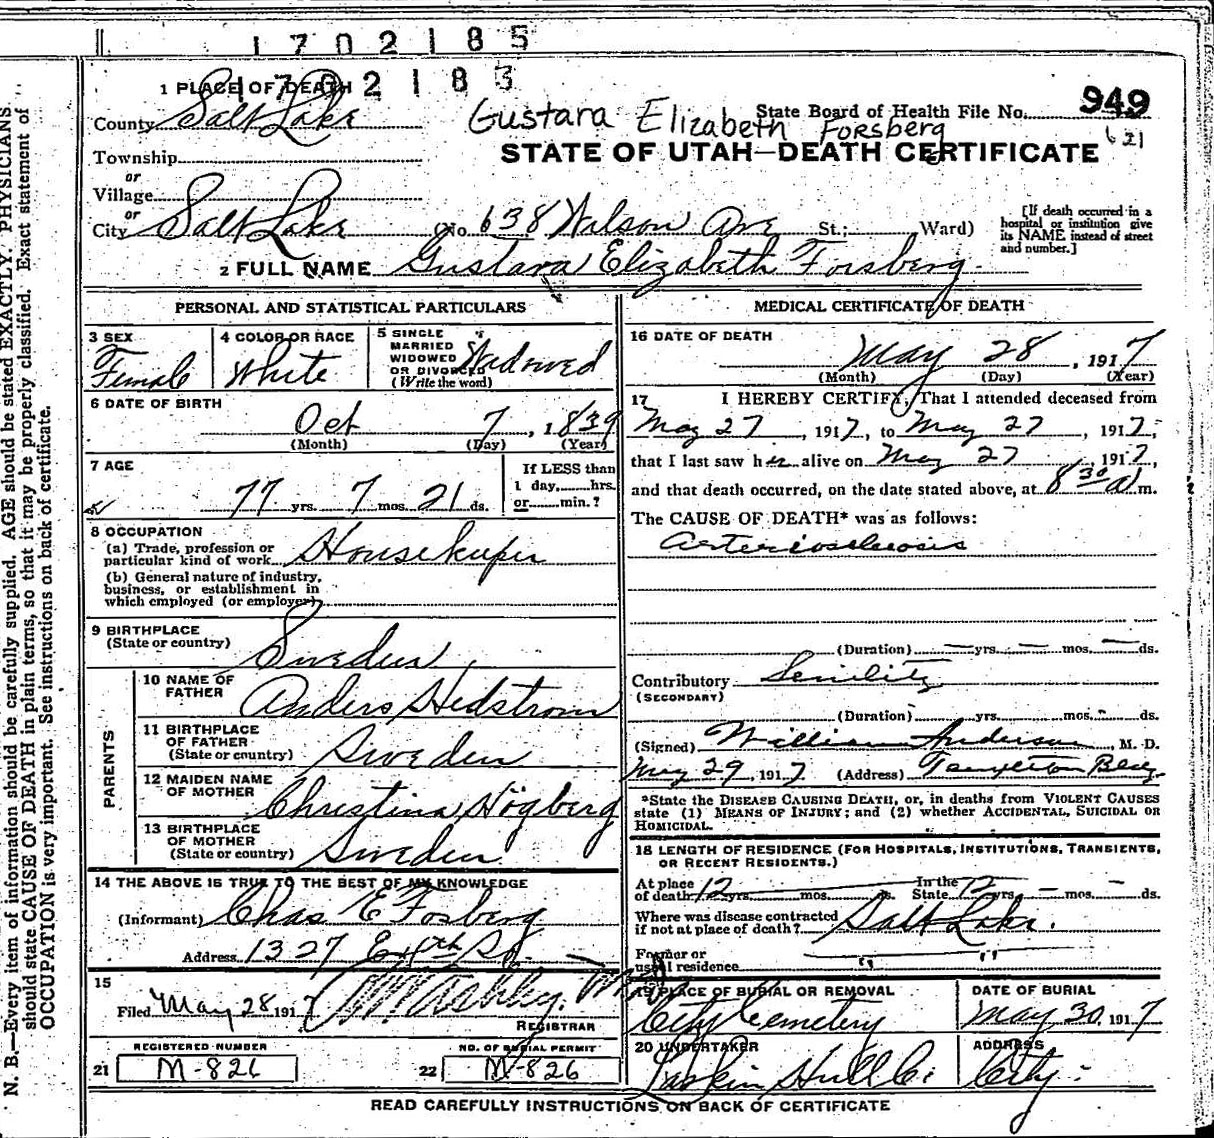 1702185
1702183
1 PLACE OF DEATH
County Salt Lake
Gustara Elizabeth Forsberg
State Board of Health File No. 949
621
Township
or
Village
or
STATE OF UTAH—DEATH CERTIFICATE
City Salt Lake (No. 638 Wilson Ave St.; Ward)
[If death occurred in a hospital or institution give its NAME instead of street and number.]
2 FULL NAME Gustara Elizabeth Forsberg
PERSONAL AND STATISTICAL PARTICULARS
3 SEX Female
4 COLOR OR RACE White
5 SINGLE MARRIED WIDOWED OR DIVORCED (Write the word) Widowed
6 DATE OF BIRTH
Oct 7, 1839
(Month) (Day) (Year)
7 AGE
77 yrs. 7 mos. 21 ds.
If LESS than 1 day......hrs. or......min.?
8 OCCUPATION
(a) Trade, profession or particular kind of work Housekeeper
(b) General nature of industry, business, or establishment in which employed (or employer)
9 BIRTHPLACE (State or country) Sweden
PARENTS
10 NAME OF FATHER Anders Hedstrom
11 BIRTHPLACE OF FATHER (State or country) Sweden
12 MAIDEN NAME OF MOTHER Christina Högberg
13 BIRTHPLACE OF MOTHER (State or country) Sweden
14 THE ABOVE IS TRUE TO THE BEST OF MY KNOWLEDGE
(Informant) Chas E Fosberg
Address 1327 So.
15
Filed May 28 1917
REGISTRAR
REGISTERED NUMBER
21 M-826
NO. OF BURIAL PERMIT
22 M-826
MEDICAL CERTIFICATE OF DEATH
16 DATE OF DEATH
May 28, 1917
(Month) (Day) (Year)
17 I HEREBY CERTIFY, That I attended deceased from
May 27, 1917, to May 27, 1917,
that I last saw her alive on May 27 1917,
and that death occurred, on the date stated above, at 8 30 a m.
The CAUSE OF DEATH* was as follows:
Arteriosclerosis
(Duration) — yrs. — mos. — ds.
Contributory Senility
(SECONDARY)
(Duration) yrs. mos. - ds.
(Signed) William Anderson, M. D.
May 29, 1917 (Address) Templeton Bldg
*State the DISEASE CAUSING DEATH, or, in deaths from VIOLENT CAUSES
state (1) MEANS OF INJURY; and (2) whether ACCIDENTAL, SUICIDAL OR
HOMICIDAL.
18 LENGTH OF RESIDENCE (FOR HOSPITALS, INSTITUTIONS, TRANSIENTS, OR RECENT RESIDENTS.)
At place of death 12 yrs. mos. ds. In the State 12 yrs. — mos. — ds.
Where was disease contracted if not at place of death? Salt Lake.
Former or usual residence " "
19 PLACE OF BURIAL OR REMOVAL City Cemetery
DATE OF BURIAL May 30, 1917
20 UNDERTAKER Larkin Hull Co.
ADDRESS City
READ CAREFULLY INSTRUCTIONS ON BACK OF CERTIFICATE
N. B.—Every item of information should be carefully supplied. AGE should be stated EXACTLY. PHYSICIANS
should state CAUSE OF DEATH in plain terms, so that it may be properly classified. Exact statement of
OCCUPATION is very important. See instructions on back of certificate.